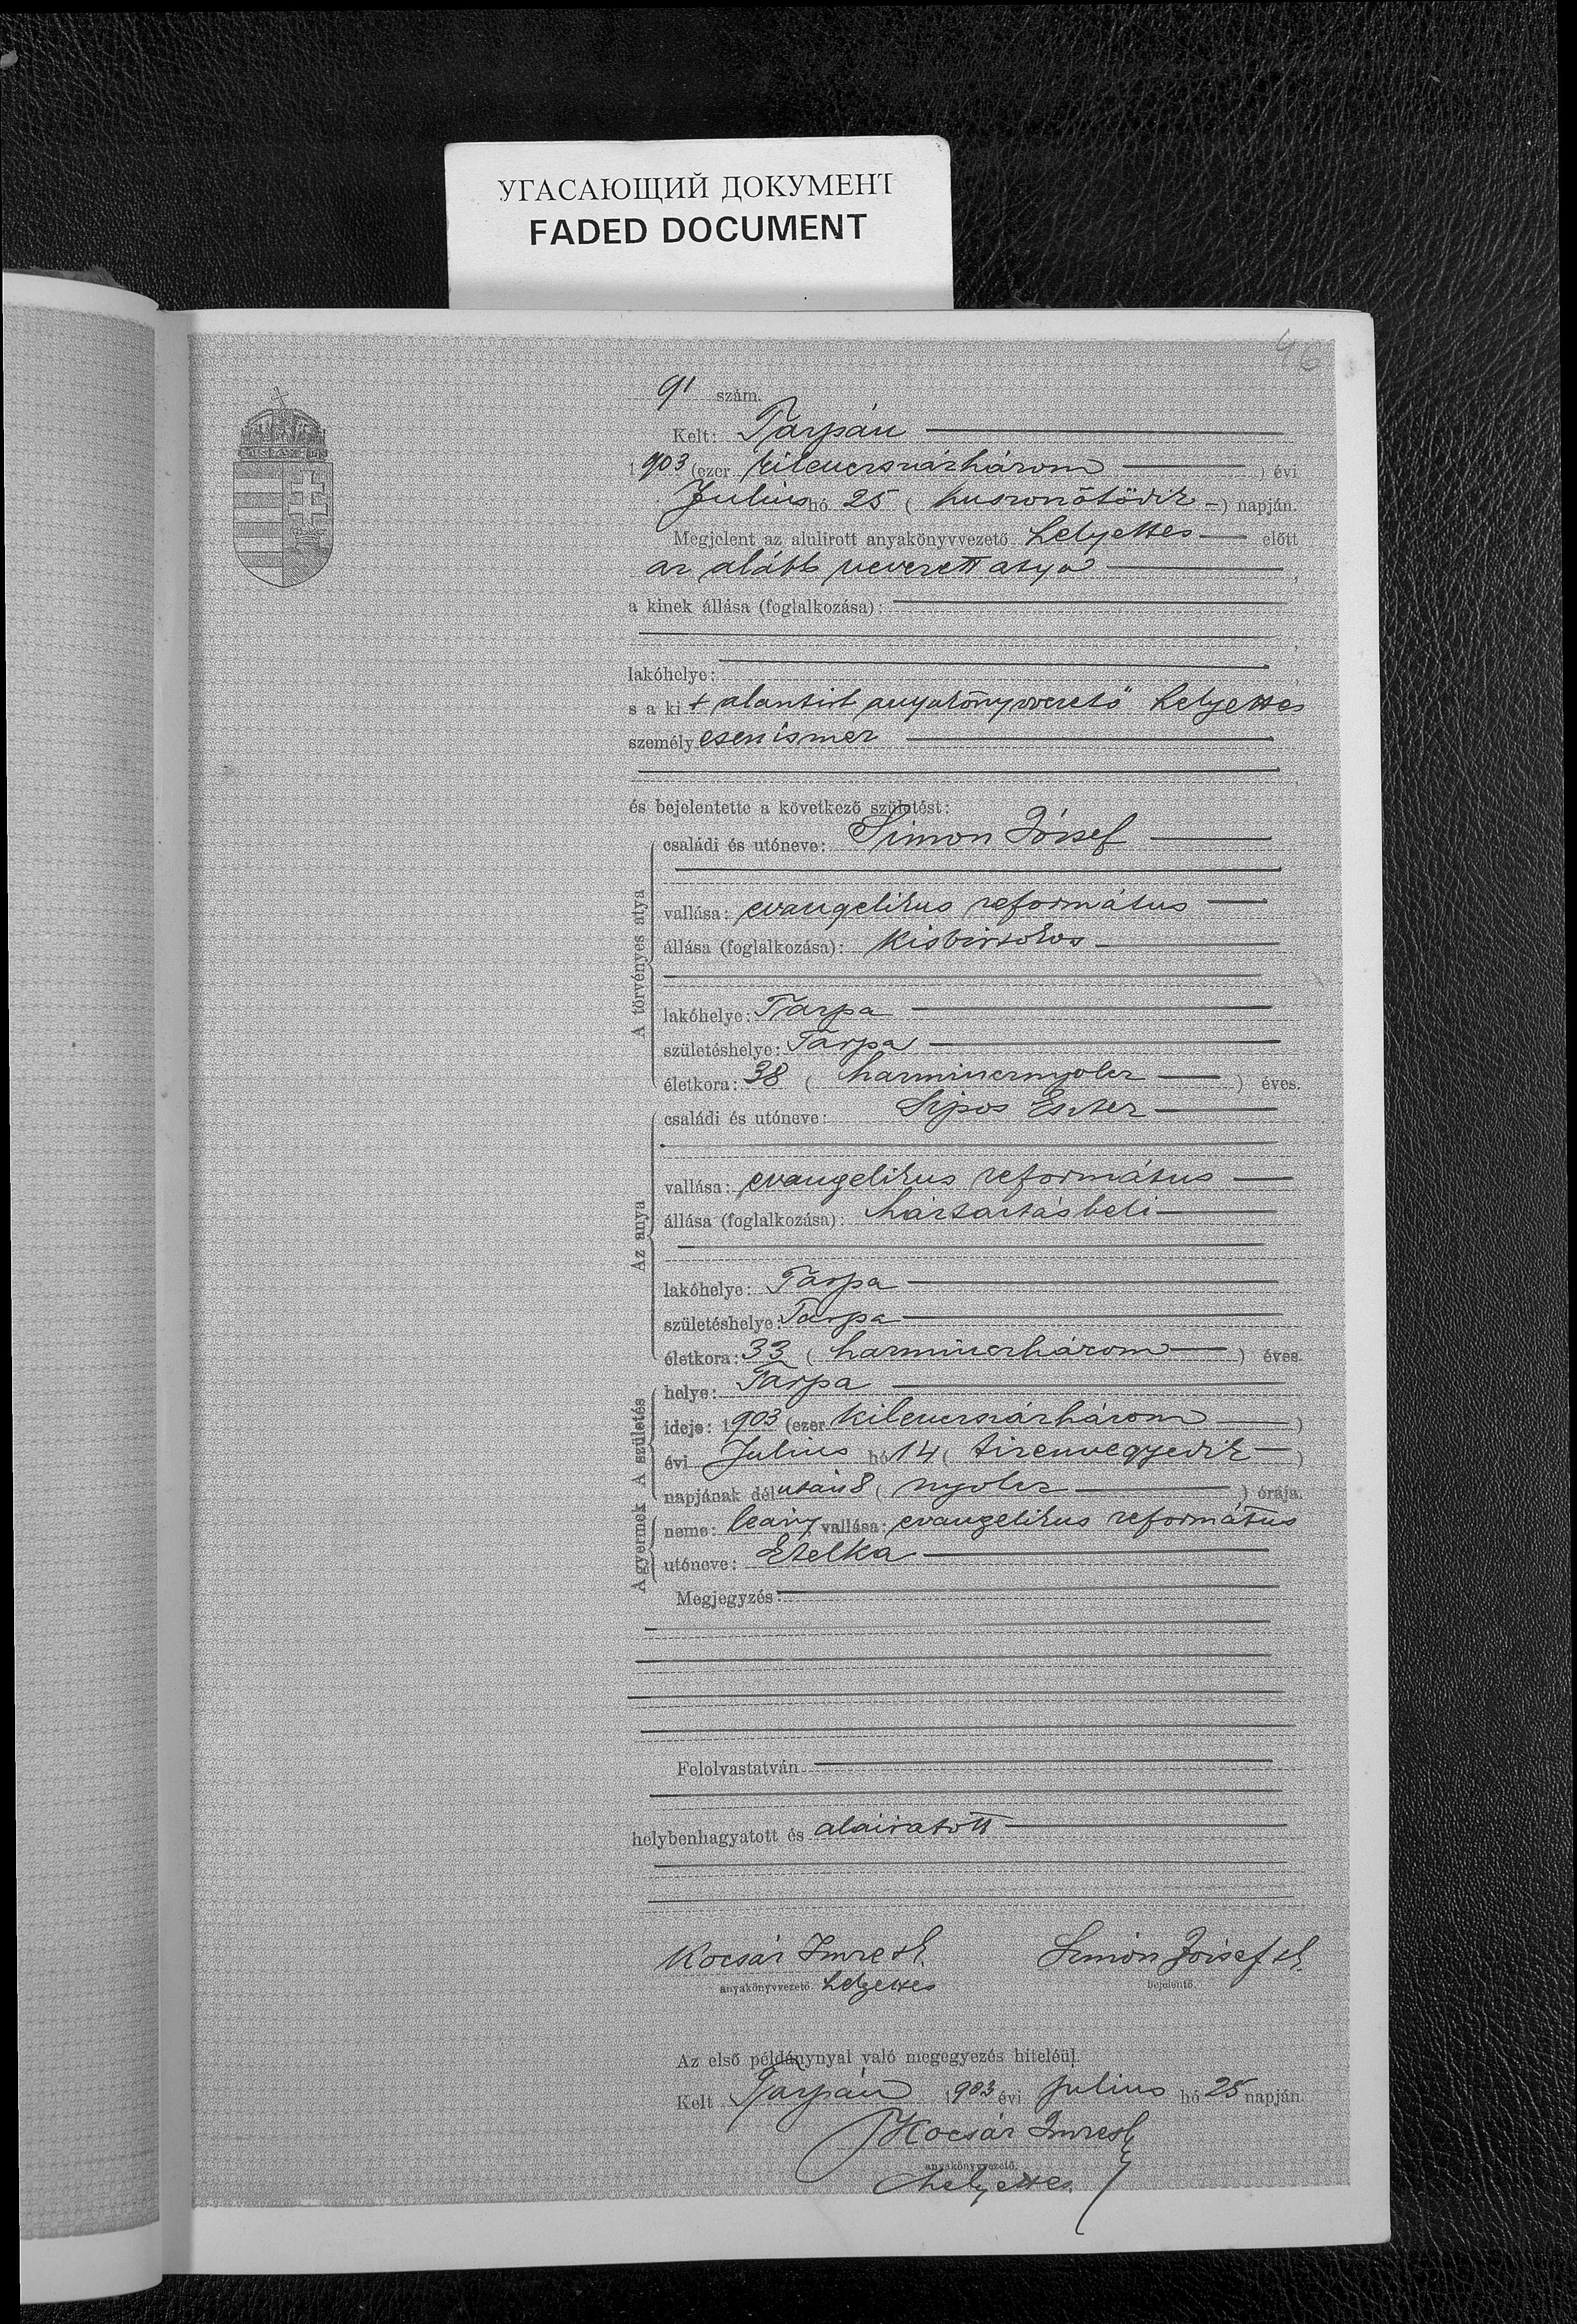 УГАСАЮЩИЙ ДОКУМЕНТ
FADED DOCUMENT
46
91 szám.
Kelt: Tarpán
1903 (ezer kilencszázhárom ) évi
Julius hó 25 ( huszonötödik ) napján.
Megjelent az alulirott anyakönyvvezető helyettes előtt
az alább nevezett atya ,
a kinek állása (foglalkozása):
lakóhelye:
s a kit alantirt anyakönyvvezető helyettes
személyesen ismer
és bejelentette a következő születést:
A törvényes atya
családi és utóneve: Simon József
vallása: evangelikus református
állása (foglalkozása): Kisbirtokos
lakóhelye: Tarpa
születéshelye: Tarpa
életkora: 38 ( harmincznyolcz ) éves.
Az anya
családi és utóneve: Sipos Eszter
vallása: evangelikus református
állása (foglalkozása): háztartásbeli
lakóhelye: Tarpa
születéshelye: Tarpa
életkora: 33 ( harminczhárom ) éves.
A születés
helye: Tarpa
ideje: 1903 (ezer kilencszázhárom )
évi Julius hó 14 ( tizennegyedik )
napjának délután 8 ( nyolcz ) órája.
A gyermek
neme: leány vallása: evangelikus református
utóneve: Etelka
Megjegyzés:
Felolvastatván
helybenhagyatott és aláiratott
Kocsár Imre sk. Simon József sk.
anyakönyvvezető helyettes bejelentő.
Az első példánynyal való megegyezés hiteléül.
Kelt Tarpán 1903 évi julius hó 25 napján.
Kocsár Imre sk
anyakönyvvezető.
helyettes